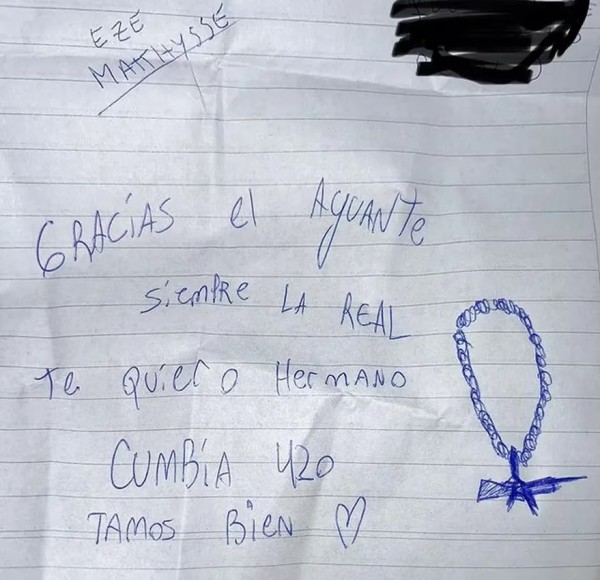 EZE
MATTHYSSE
GRACIAS el AGUANTE
siempre LA REAL
te quiero Hermano
CUMBIA 420
TAMOS BIEN ♡